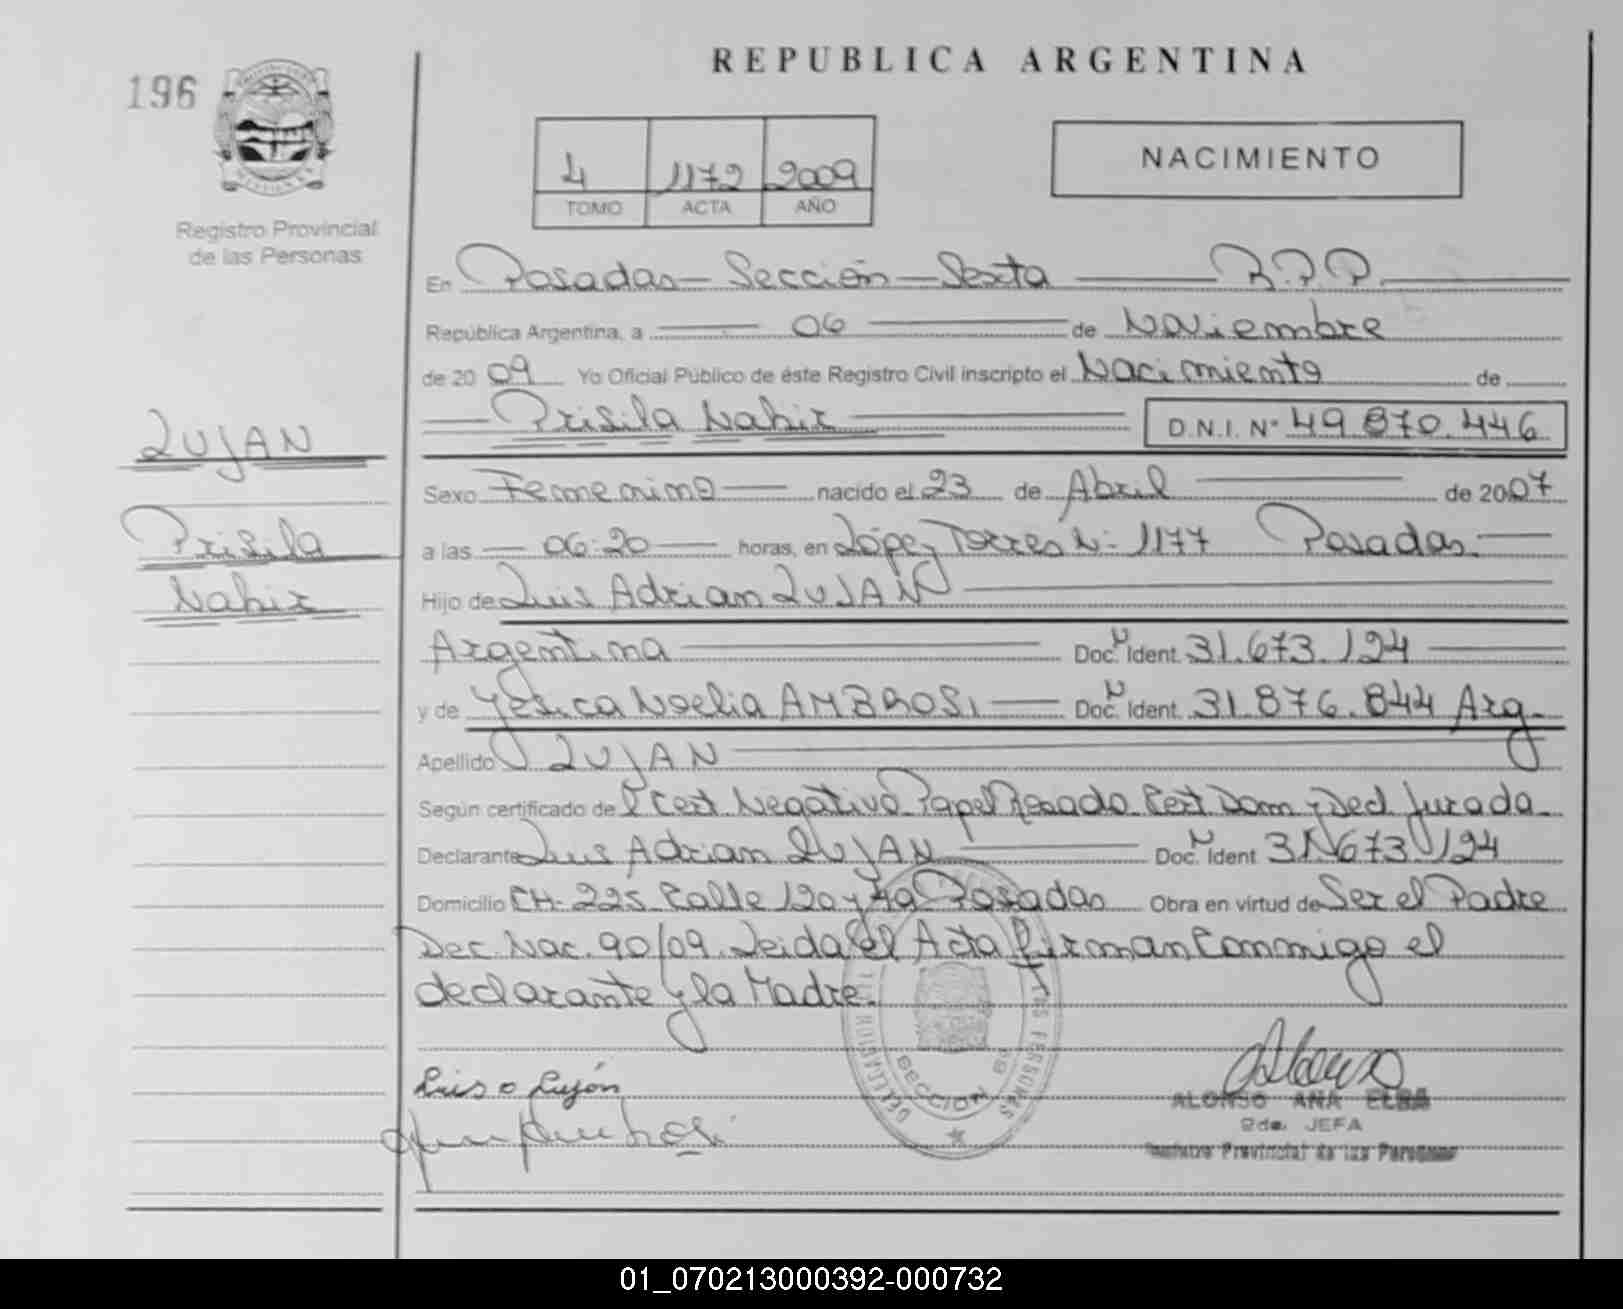 REPUBLICA ARGENTINA
196
4 1172 2009
TOMO ACTA AÑO
NACIMIENTO
Registro Provincial
de las Personas
En Posadas - Sección - Sexta R.P.P.
República Argentina, a 06 de Noviembre
de 20 09 Yo Oficial Público de éste Registro Civil inscripto el Nacimiento de
Prisila Nahir D.N.I. N° 49.870.446
LUJAN
Prisila
Nahir
Sexo Femenino nacido el 23 de Abril de 2007
a las 06:20 horas, en López Torres N- 1177 Posadas.
Hijo de Luis Adrian LUJAN
Argentina Doc. N Ident. 31.673.124
y de Yesica Noelia AMBROSI Doc. N Ident. 31.876.844 Arg.
Apellido LUJAN
Según certificado de Cert. Negativo Papel Rosado Cert Dom y Decl Jurada
Declarante Luis Adrian LUJAN Doc. N Ident 31.673.124
Domicilio CH- 225 Calle 120 y 49 Posadas Obra en virtud de Ser el Padre
Dec. Nac. 90/09. Leida el Acta firman Conmigo el
declarante y la Madre.
DELEGACION
SECCION 6a
LAS PERSONAS
Luis a Luján
ALONSO ANA ELBA
2da. JEFA
Registro Provincial de las Personas
01_070213000392-000732